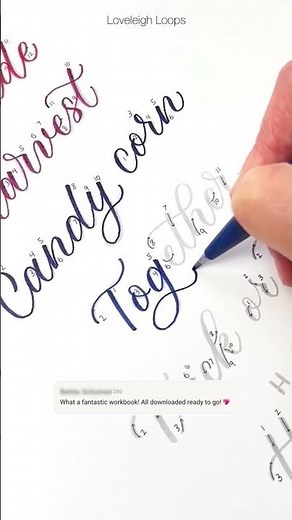 Loveleigh Loops
Harvest
Candy corn
Together
Trick or
28d
What a fantastic workbook! All downloaded ready to go! 💖